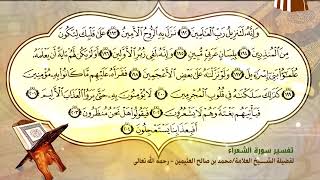 وَإِنَّهُ لَتَنزِيلُ رَبِّ الْعَالَمِينَ ۝١٩٢ نَزَلَ بِهِ الرُّوحُ الْأَمِينُ ۝١٩٣ عَلَىٰ قَلْبِكَ لِتَكُونَ
مِنَ الْمُنذِرِينَ ۝١٩٤ بِلِسَانٍ عَرَبِيٍّ مُّبِينٍ ۝١٩٥ وَإِنَّهُ لَفِي زُبُرِ الْأَوَّلِينَ ۝١٩٦ أَوَلَمْ يَكُن لَّهُمْ آيَةً أَن يَعْلَمَهُ
عُلَمَاءُ بَنِي إِسْرَائِيلَ ۝١٩٧ وَلَوْ نَزَّلْنَاهُ عَلَىٰ بَعْضِ الْأَعْجَمِينَ ۝١٩٨ فَقَرَأَهُ عَلَيْهِم مَّا كَانُوا بِهِ مُؤْمِنِينَ
۝١٩٩ كَذَٰلِكَ سَلَكْنَاهُ فِي قُلُوبِ الْمُجْرِمِينَ ۝٢٠٠ لَا يُؤْمِنُونَ بِهِ حَتَّىٰ يَرَوُا الْعَذَابَ الْأَلِيمَ ۝٢٠١
فَيَأْتِيَهُم بَغْتَةً وَهُمْ لَا يَشْعُرُونَ ۝٢٠٢ فَيَقُولُوا هَلْ نَحْنُ مُنظَرُونَ ۝٢٠٣
أَفَبِعَذَابِنَا يَسْتَعْجِلُونَ ۝٢٠٤
تفسير سورة الشعراء
لفضيلة الشيخ العلامة/محمد بن صالح العثيمين - رحمه الله تعالى